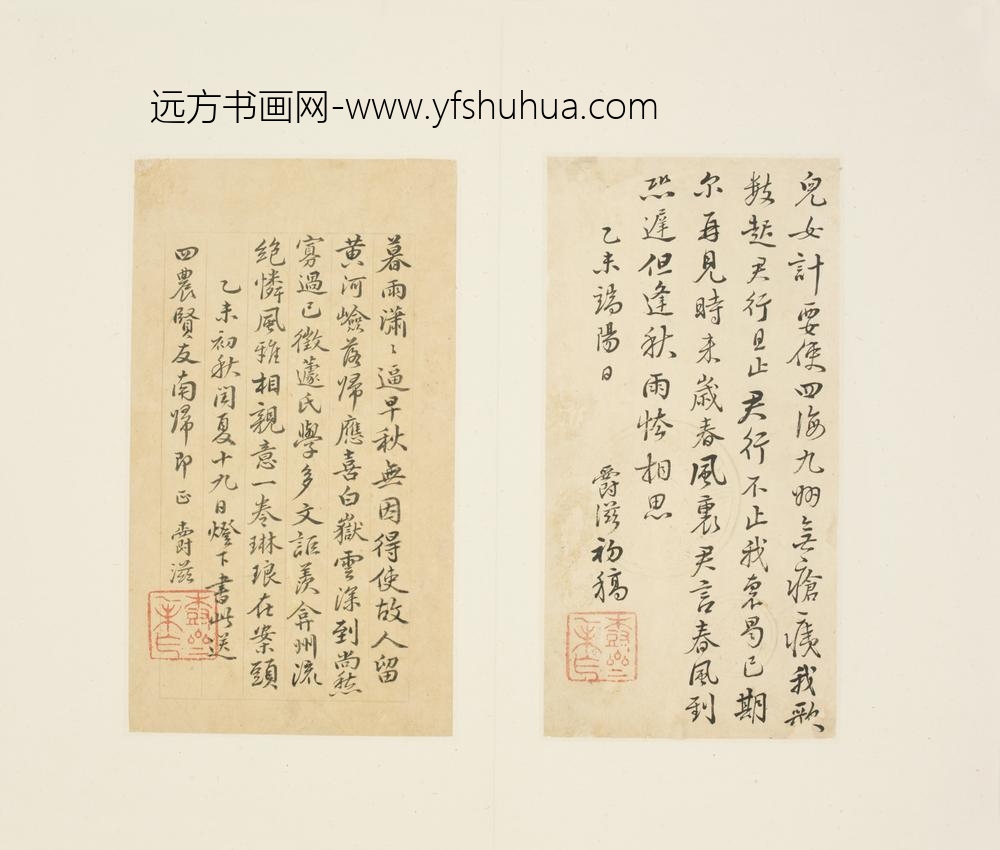 远方书画网-www.yfshuhua.com
兒女計要使四海九州無瘡痍我歌
數起君行且止君行不止我衷曷已期
尔再見時来歲春風裏君言春風到
恐遲但逢秋雨恠相思
乙未端陽日
爵滋初稿
暮雨瀟〻逼早秋無因得使故人留
黄河嶮落歸應喜白嶽雲深到尚愁
寡過已徵蘧氏學多文詎羡弇州流
絶憐風雅相親意一卷琳琅在案頭
乙未初秋閏夏十九日燈下書此送
四農賢友南歸即正 爵滋